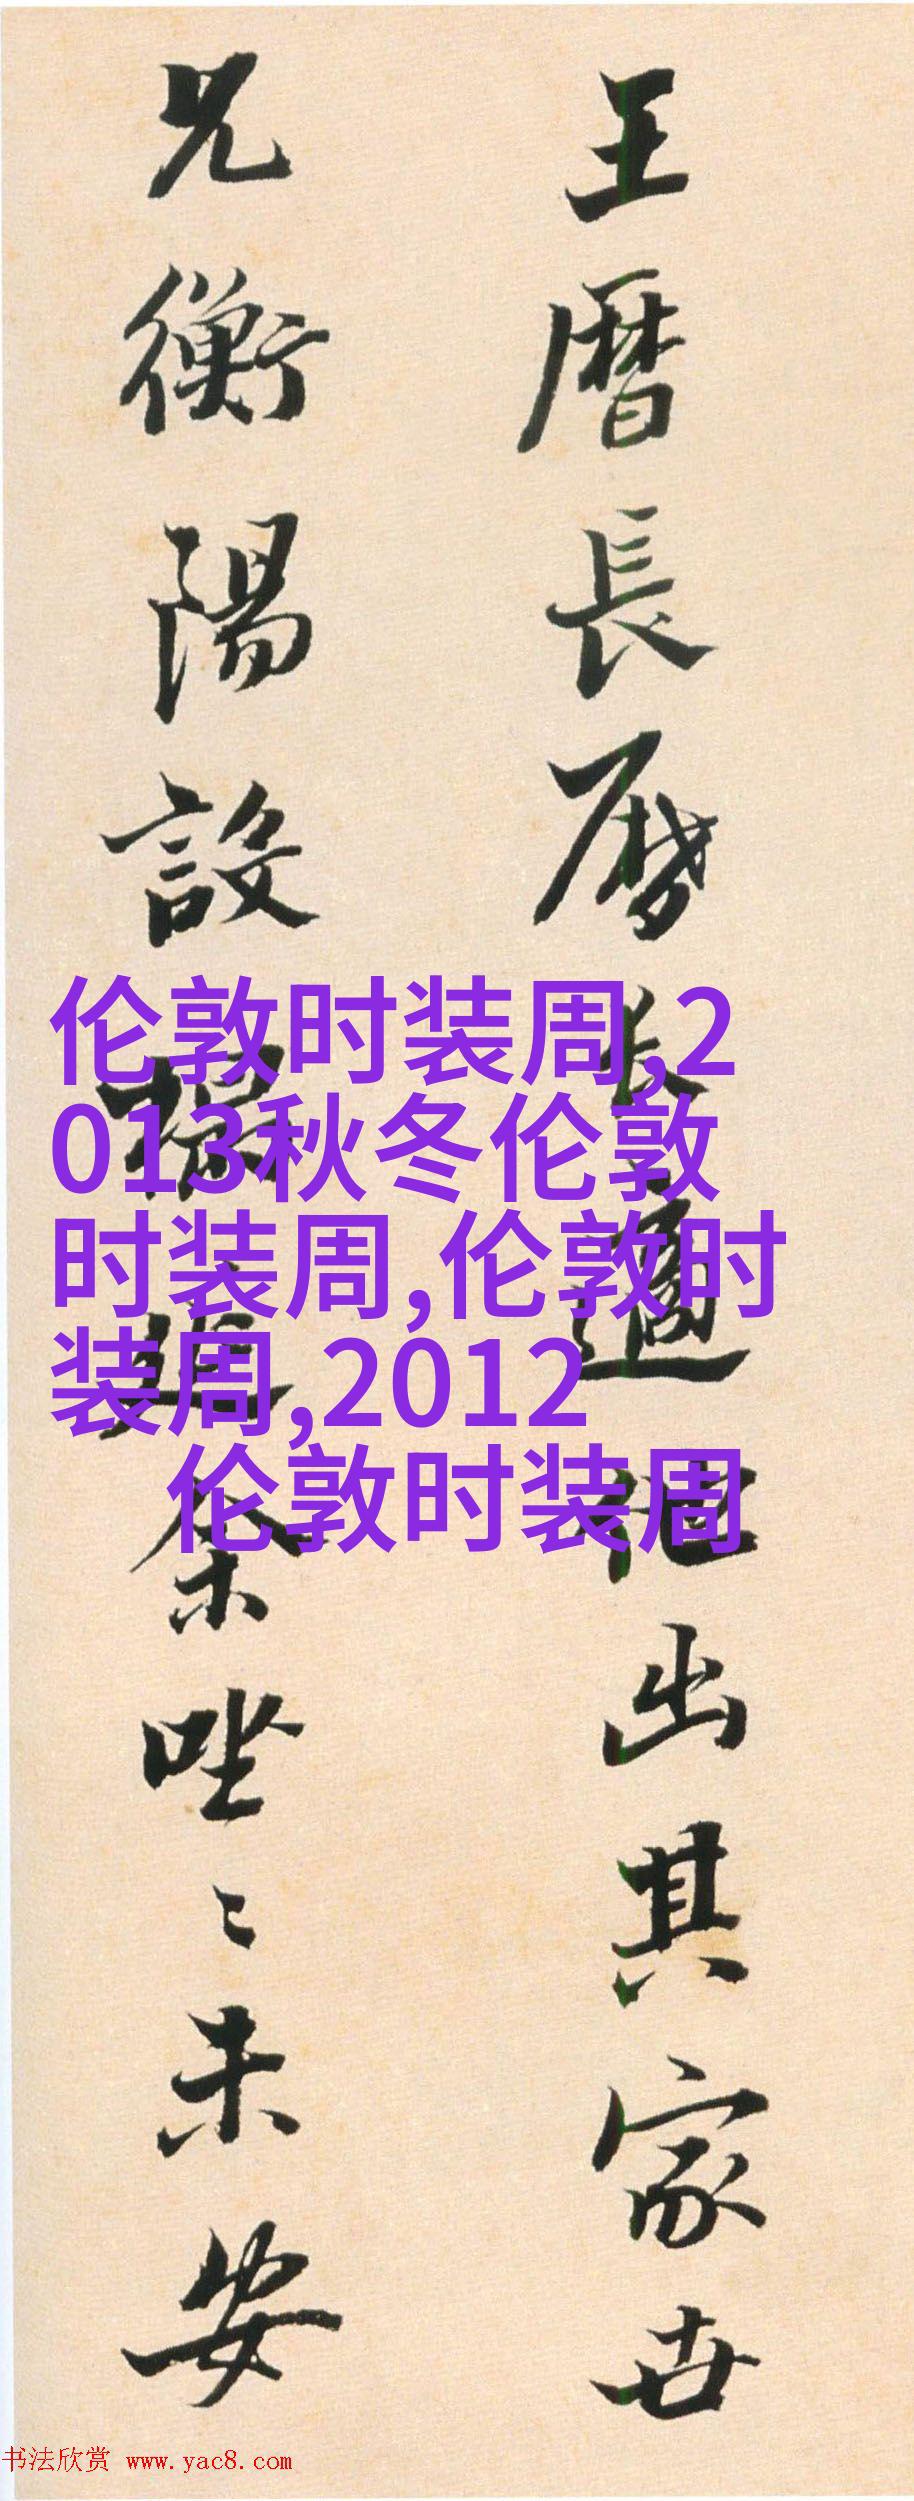 王暦長適他出其家世
兄衡陽設余唑未安
伦敦时装周,2
013秋冬伦敦
时装周,伦敦时
装周,2012
伦敦时装周
书法欣赏 www.yac8.com